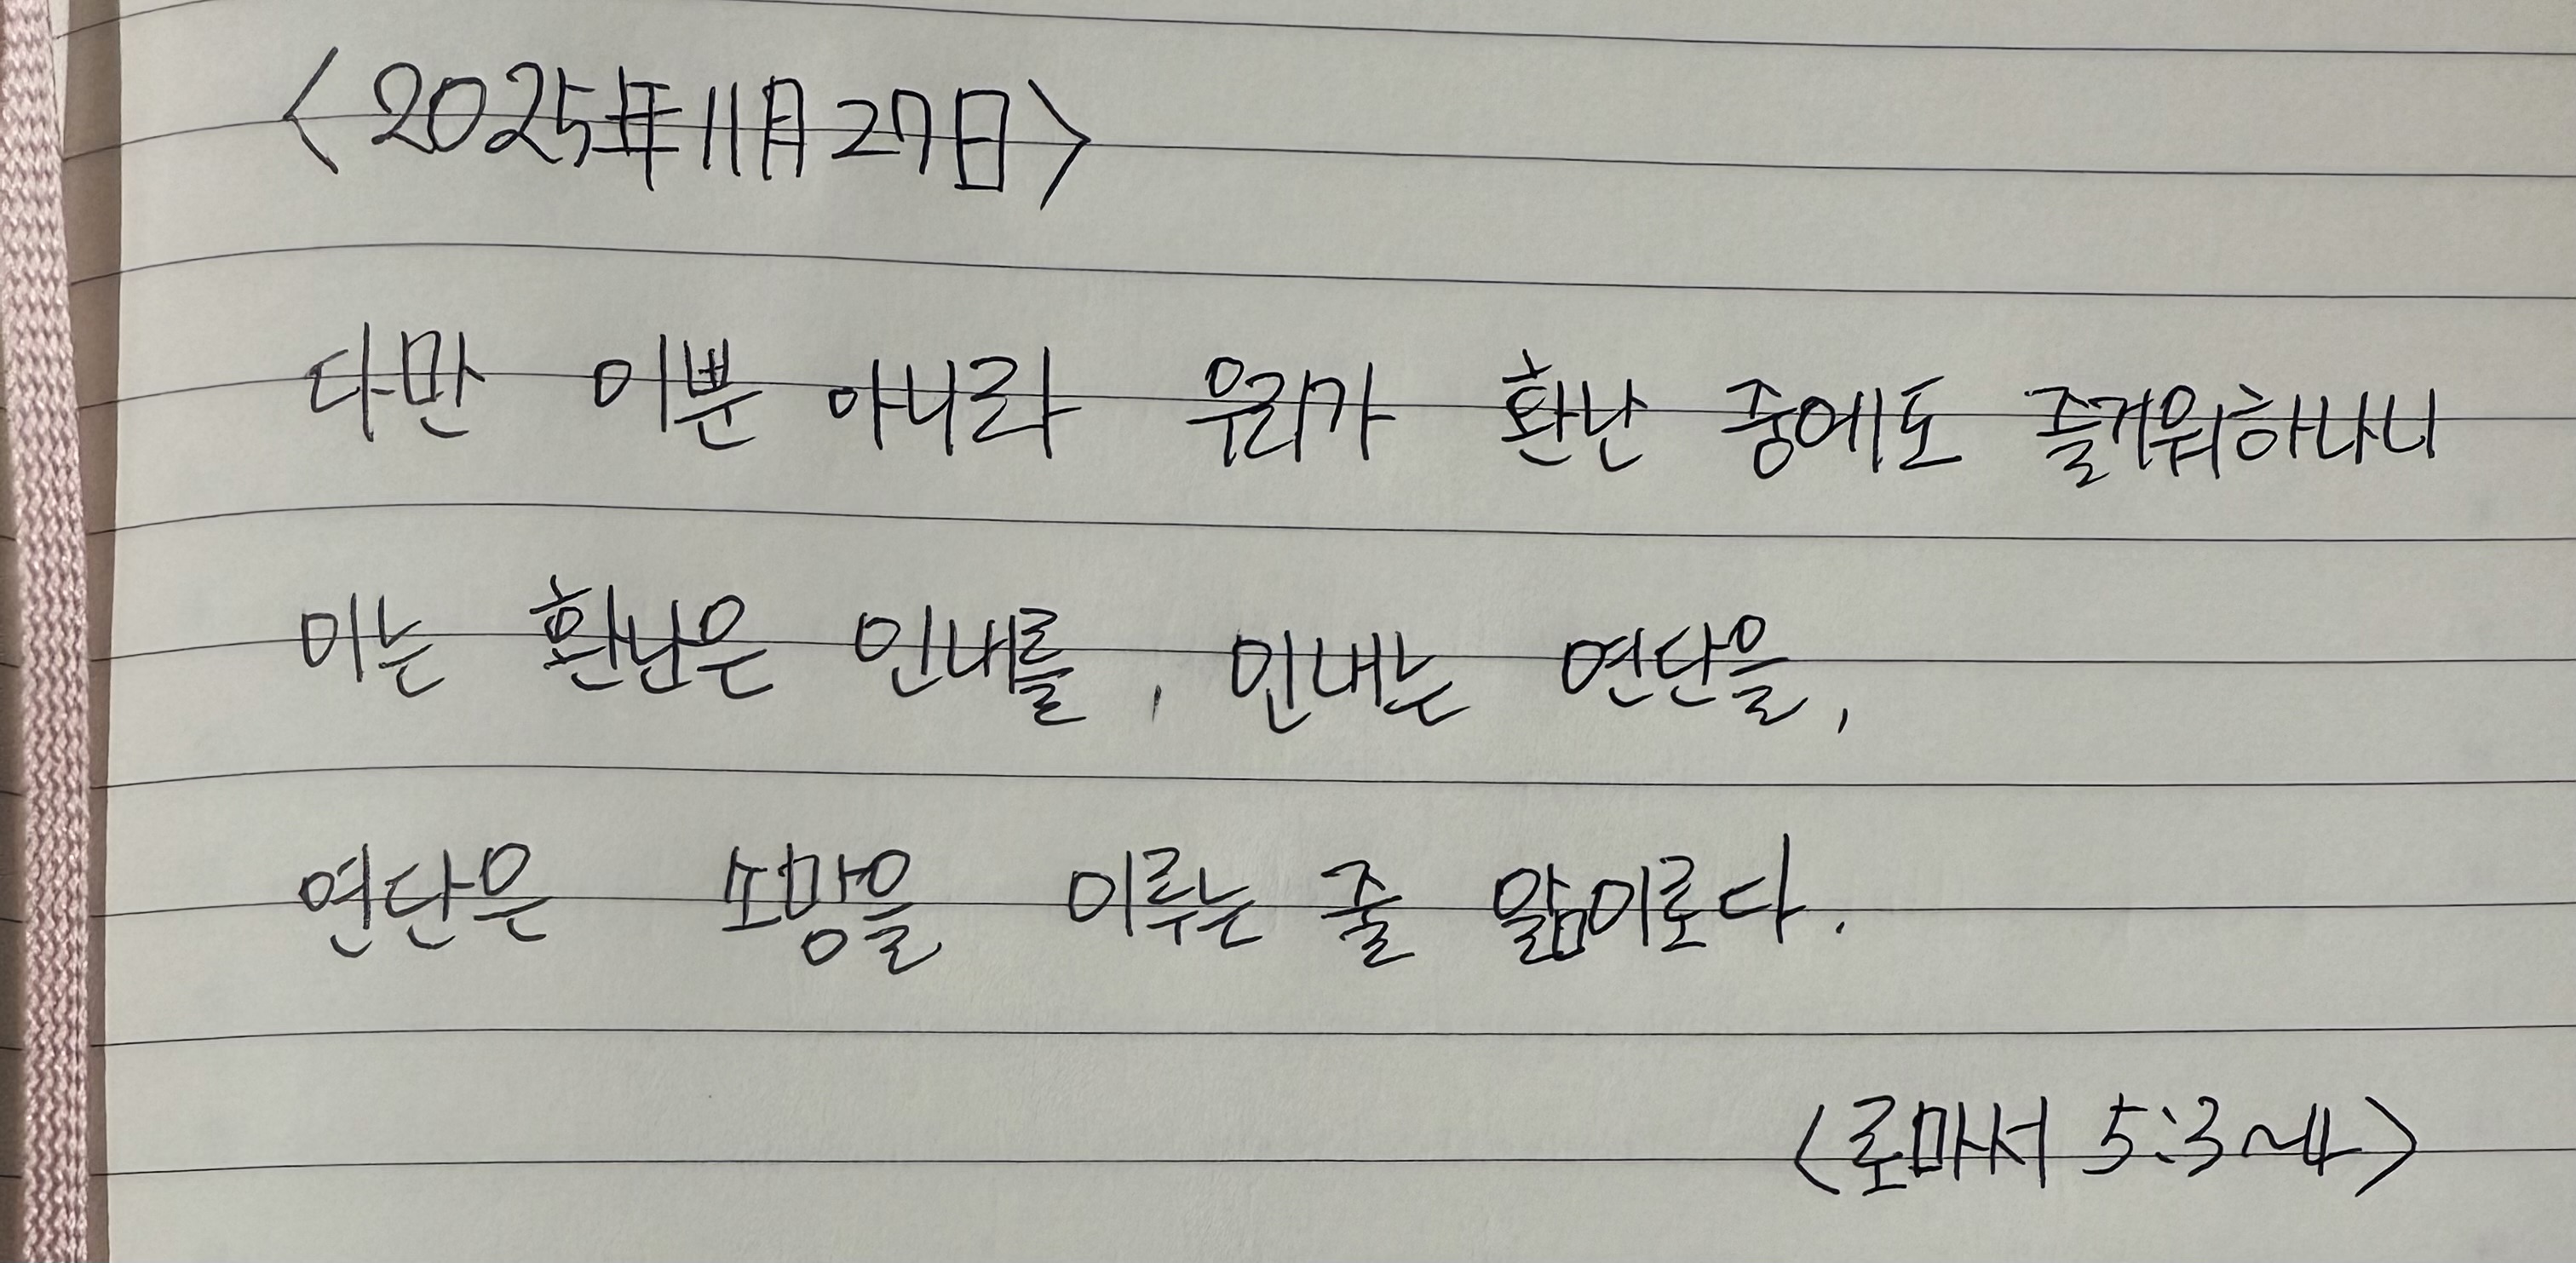 <2025年11月27日>
다만 이뿐 아니라 우리가 환난 중에도 즐거워하나니
이는 환난은 인내를, 인내는 연단을,
연단은 소망을 이루는 줄 앎이로다.
<로마서 5:3~4>